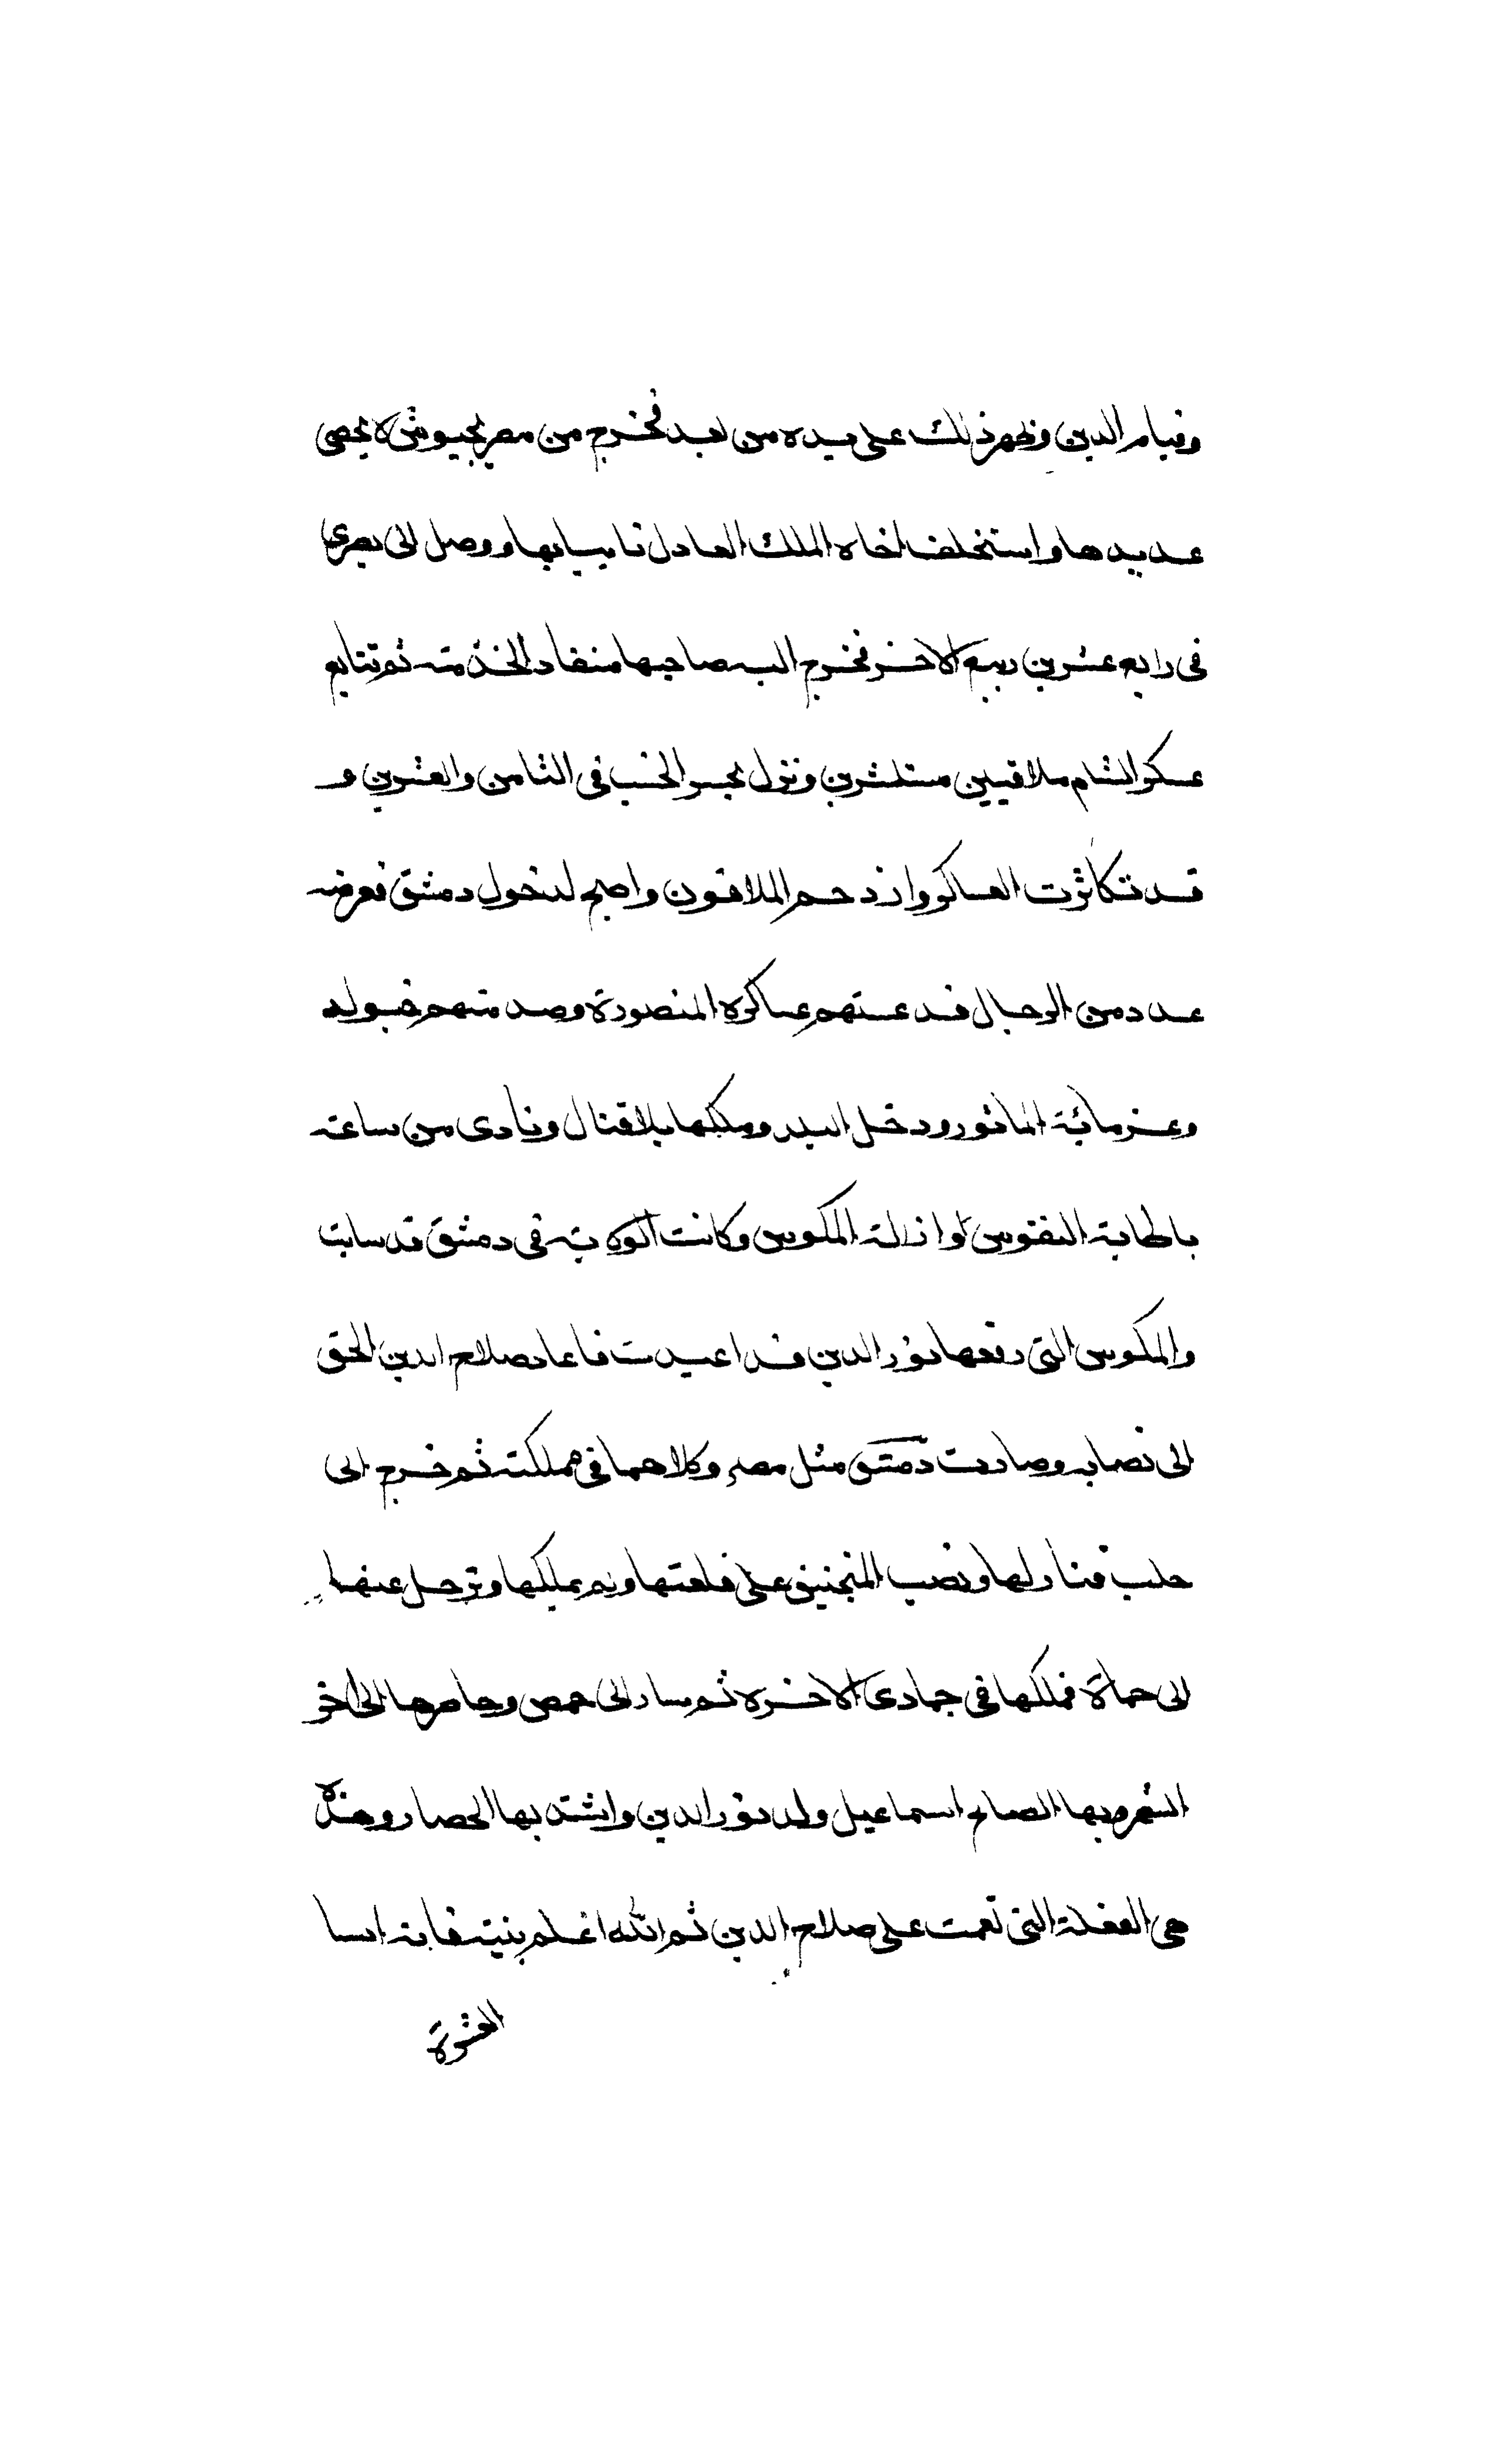 وقيام الدين وظهر ذلك على يده من بعد فخرج من مصر بجيوش لا يحصى
عديدها واستخلف اخاه الملك العادل نايبا بها ووصل الى بصرى
فى رابع عشرين ربيع الاخر فخرج اليه صاحبها منقاد الخدمته ثم تتابع
عسكر الشام ملاقيين مستبشرين ونزل بجسر الخشب فى الثامن والعشرين و
قد تكاثرت العساكر وازدحم الملاقون واصبح لدخول دمشق فعرضه
عدد من الرجال فدعستهم عساكره المنصورة وصدمتهم خيوله
وعزمائه ودخل البلد وملكها بلا قتال ونادى من ساعته
باطابة النفوس وازالة المكوس وكانت الولاية فى دمشق قد سابت
والمكوس التى رفعها نور الدين قد اعيدت فاعاد صلاح الدين الحق
الى نصابه وصارت دمشق مثل مصر وكلاهما فى مملكته ثم خرج الى
حلب فنازلها ونصب المنجنيق على قلعتها ولم يملكها وترحل عنها
الى حماة فملكها فى جمادى الاخرة ثم سار الى حمص وحاصرها الى اخر
الشهر وبها الصالح اسماعيل ولد نور الدين واشتد بها الحصار وهذه
هى الفعلة التى نقمت على صلاح الدين ثم الله اعلم بنيته فانه اسا
العشرة